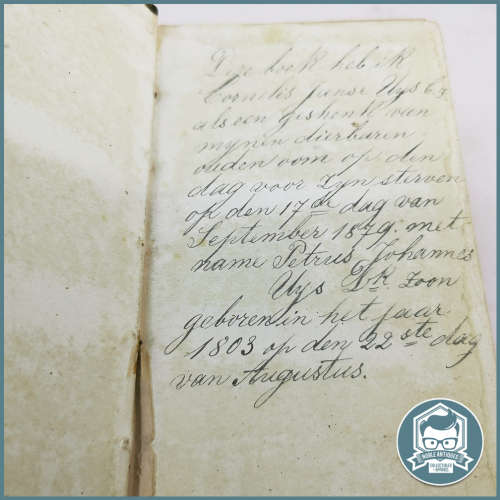 Dze book heb ik
Cornelis Jansz Uys
als een geshenk van
mynen dierbaren
ouden oom op den
dag voor zyn sterven
op den 17de dag van
September 1879. met
name Petrus Johannes
Uys Drk zoon
geboren in het jaar
1803 op den 22ste dag
van Augustus.
NOBLE ANTIQUES